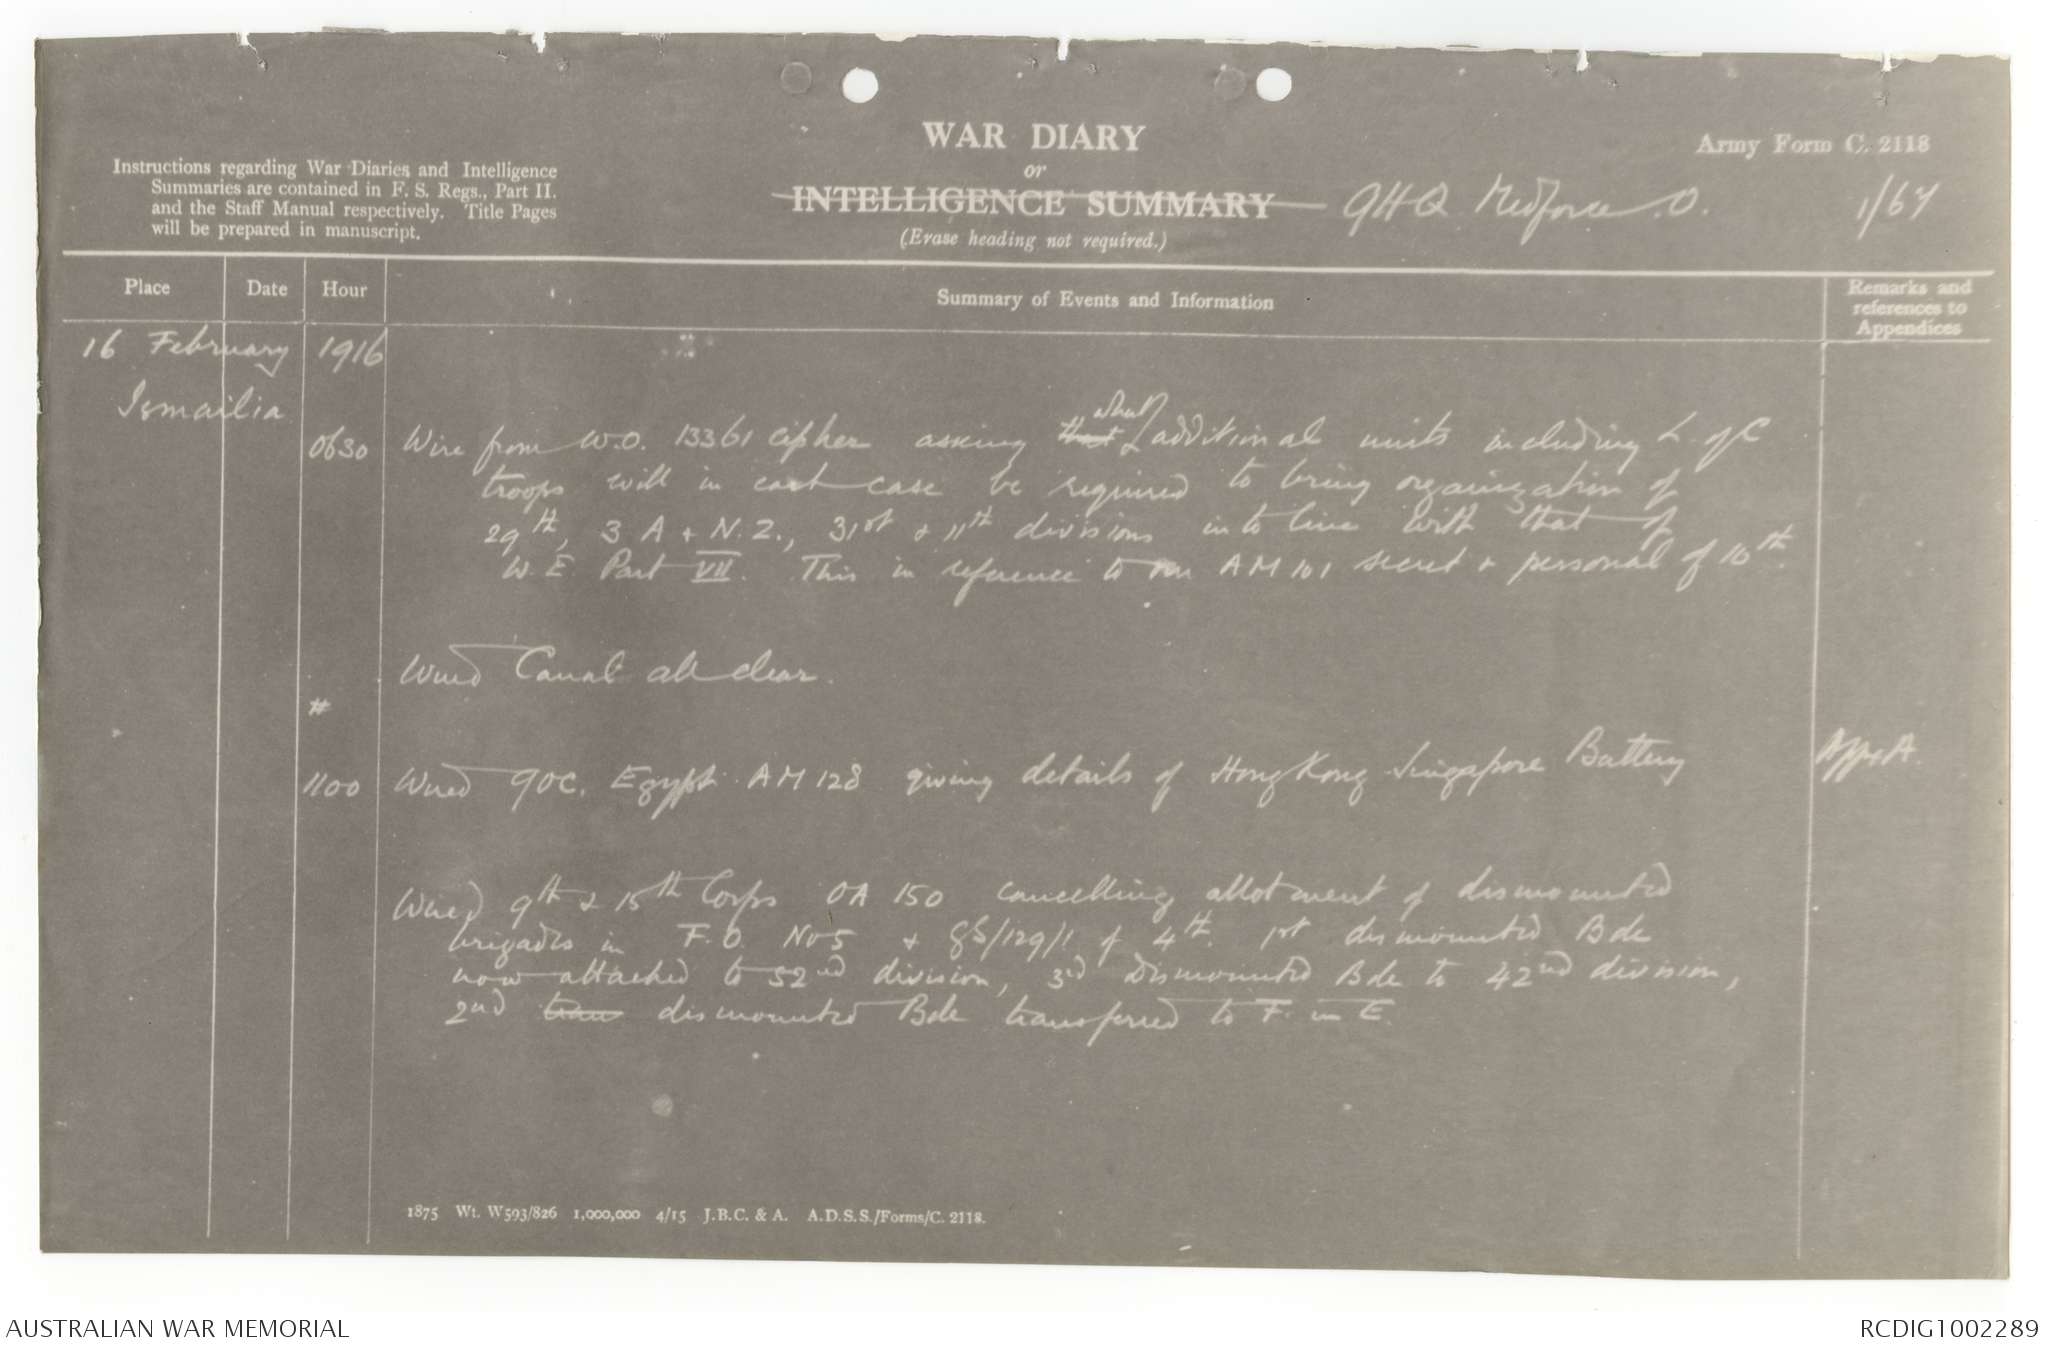 WAR DIARY
or
INTELLIGENCE SUMMARY
(Erase heading not required.)
Army Form C. 2118
Instructions regarding War Diaries and Intelligence
Summaries are contained in F. S. Regs., Part II.
and the Staff Manual respectively. Title Pages
will be prepared in manuscript.
GHQ Medforce O.
1/67
Place
Date
Hour
Summary of Events and Information
Remarks and
references to
Appendices
16 February 1916
Ismailia
0630 Wire from W.O. 13361 cipher asking that what additional units including L. of C
troops will in each case be required to bring organization of
29th, 3 A & N.Z., 31st & 11th divisions into line with that of
W.E. Part VII. This in reference to our AM 101 secret & personal of 10th.
Wired Canal all clear.
#
1100 Wired GOC. Egypt AM 128 giving details of Hong Kong Singapore Battery
Appx A.
Wired 9th & 15th Corps OA 150 cancelling allotment of dismounted
brigades in F.O. No 5 & GS/129/1 of 4th. 1st dismounted Bde
now attached to 52nd division, 3rd Dismounted Bde to 42nd division,
2nd tran dismounted Bde transferred to F. in E.
1875 Wt. W593/826 1,000,000 4/15 J.B.C. & A. A.D.S.S./Forms/C. 2118.
AUSTRALIAN WAR MEMORIAL
RCDIG1002289